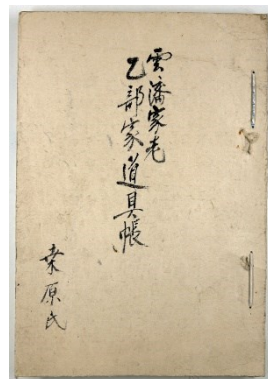 雲藩家老
乙部家道具帳
桑原氏